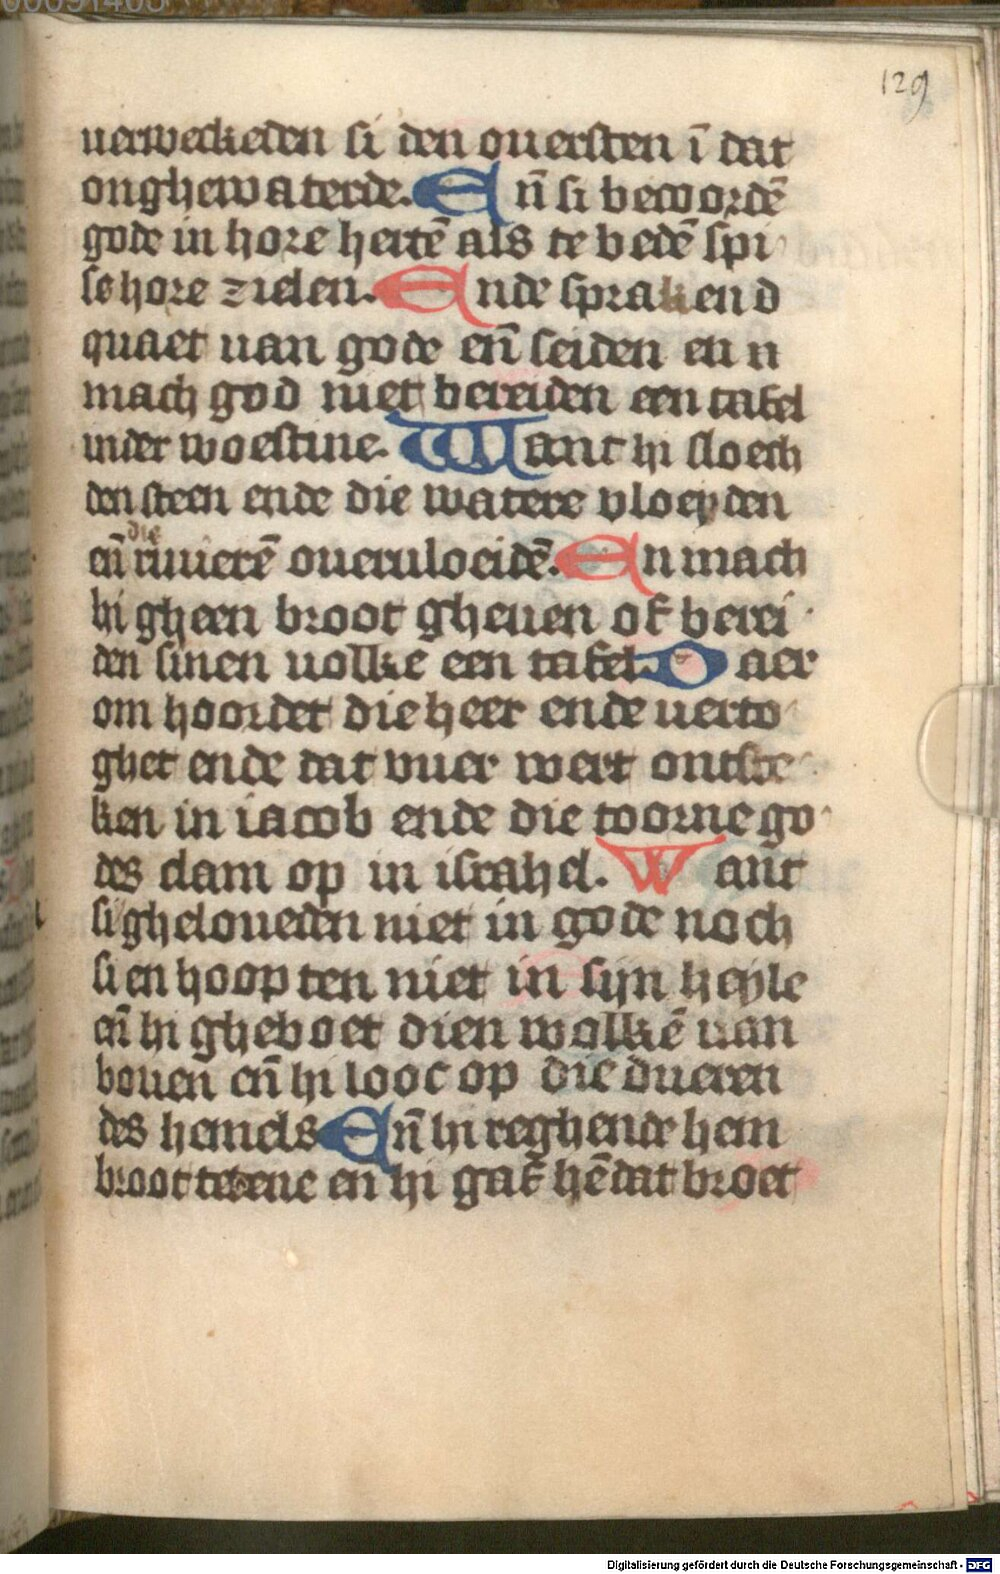 129
verweckeden si den ouersten ī dat
onghewaterde. En̄ si becoordē
gode in hore hertē als te bedē spi
se hore zielen. Ende spraken d
quaet uan gode en̄ seiden en n
mach god niet bereiden een tafel
inder woestine. Want hi sloech
den steen ende die watere vloeyden
en̄ die riuierē oueruloeidē. En mach
hi gheen broot gheuen of berei
den sinen uolke een tafel. Daer
om hoordet die heer ende uerto
ghet ende dat vuer wert ontste
ken in iacob ende die toorne go
des clam op in israhel. Want
si gheloueden niet in gode noch
si en hoopten niet in sijn heyle
en̄ hi gheboet dien wolkē uan
bouen en̄ hi looc op die dueren
des hemels En̄ hi reghende hem
broot tetene en hi gaf hē dat broet
Digitalisierung gefördert durch die Deutsche Forschungsgemeinschaft - DFG